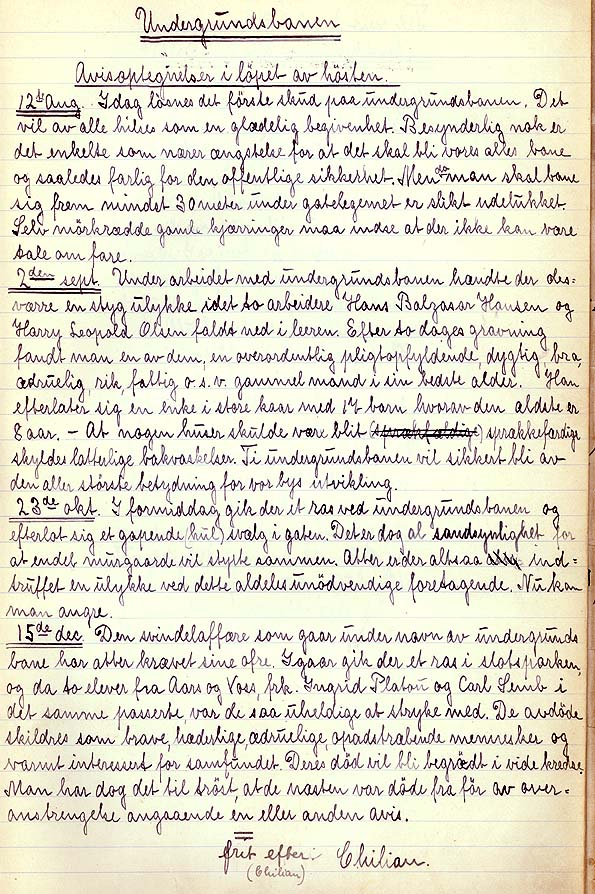 Undergrundsbanen
Avisoptegnelser i löpet av hösten.
12te Aug. Idag lösnes det förste skud paa undergrundsbanen. Det
vil av alle hilies som en glædelig begivenhet. Besynderlig nok er
det enkelte som nærer ængstelse for at det skal bli vores alles bane
og saaledes farlig for den offentlige sikkerhet. Men da man skal bane
sig frem mindst 30 meter under gatelegemet er slikt udelukket.
Selv mörkrædde gamle kjærringer maa indse at der ikke kan være
tale om fare.
2den sept. Under arbeidet med undergrundsbanen hændte der des=
værre en styg ulykke idet to arbeidere Hans Balzasar Hansen og
Harry Leopold Olsen faldt ned i leeren. Efter to dages gravning
fandt man en av dem, en overordentlig pligtopfyldende, dygtig, bra,
ædruelig, rik, fattig o.s.v. gammel mand i sin bedste alder. Han
efterlater sig en enke i store kaar med 17 barn hvorav den ældste er
8 aar. – At nogen huser skulde være blit (sprækfældige) sprækkefærdige
skyldes latterlige bakvaskelser. Ti undergrundsbanen vil sikkert bli av
den aller störste betydning for vor bys utvikling.
23de okt. I formiddag gik der et ras ved undergrundsbanen og
efterlot sig et gapende (hul) svælg i gaten. Det er dog al sandsynlighet for
at endel murgaarde vil styrte sammen. Atter er der altsaa ind=
truffet en ulykke ved dette aldeles unödvendige foretagende. Nu kan
man angre.
15de dec Den svindelaffære som gaar under navn av undergrunds
bane har atter krævet sine ofre. Igaar gik der et ras i slotsparken,
og da to elever fra Aars og Voss, frk. Ingrid Platou og Carl Semb i
det samme passerte, var de saa uheldige at stryke med. De avdöde
skildres som brave, hæderlige, ædruelige, opadstræbende mennesker og
varmt interessert for samfundet. Deres död vil bli begrædt i vide kredse.
Man har dog det til tröst, at de næsten var döde fra för av over-
anstrengelse angaaende en eller anden avis.
frit efter: Chilian.
(Chilian)